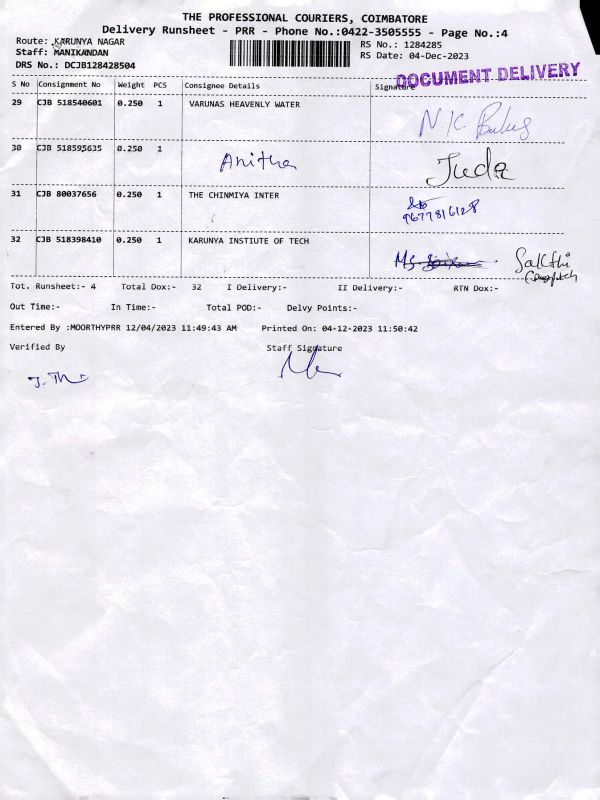 THE PROFESSIONAL COURIERS, COIMBATORE
Delivery Runsheet - PRR - Phone No.:0422-3505555 - Page No.:4
Route: KARUNYA NAGAR RS No.: 1284285
Staff: MANIKANDAN RS Date: 04-Dec-2023
DRS No.: DCJB128428504
DOCUMENT DELIVERY
S No Consignment No Weight PCS Consignee Details Signature
29 CJB 518540601 0.250 1 VARUNAS HEAVENLY WATER
N.K
30 CJB 518595635 0.250 1
Anitha
31 CJB 80037656 0.250 1 THE CHINMIYA INTER
9677816128
32 CJB 518398410 0.250 1 KARUNYA INSTIUTE OF TECH
Ms. Sakthi
Tot. Runsheet:- 4 Total Dox:- 32 I Delivery:- II Delivery:- RTN Dox:-
Out Time:- In Time:- Total POD:- Delvy Points:-
Entered By :MOORTHYPRR 12/04/2023 11:49:43 AM Printed On: 04-12-2023 11:50:42
Verified By Staff Signature